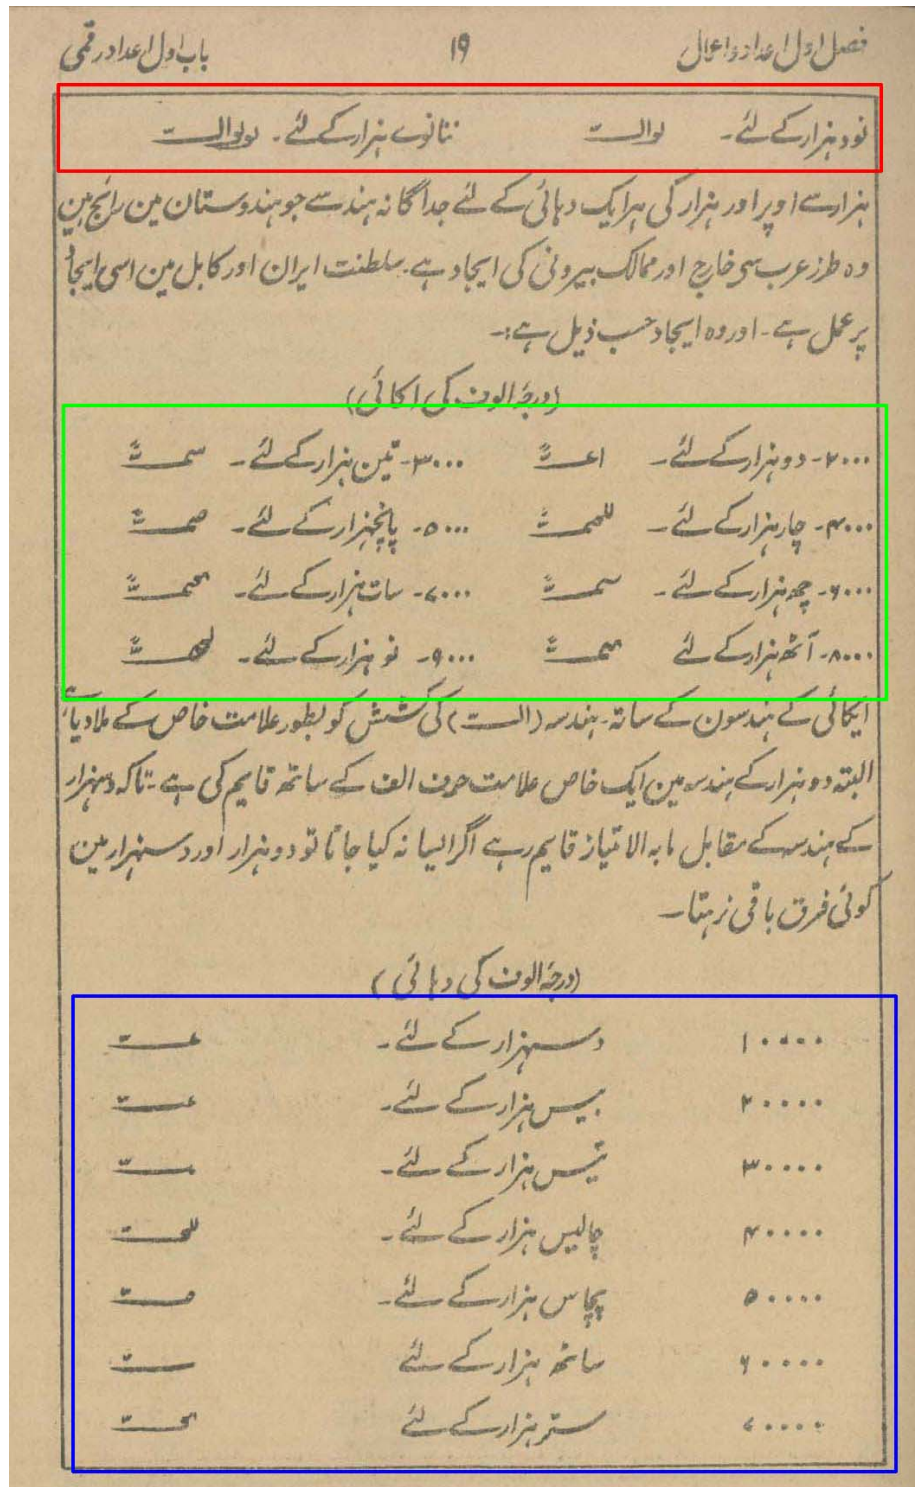 فصل اول اعداد و اعمال ۱۹ باب اول اعداد رقمی
نود ہزار کے لئے۔ نناوے ہزار کے لئے۔
ہزار سے اوپر اور ہزار کی ہر ایک دہائی کے لئے جداگانہ ہندسے جو ہندوستان مین رائج ہین
وہ طرز عرب سی خارج اور ممالک بیرونی کی ایجاد ہے۔ سلطنت ایران اور کابل مین اسی ایجاد
پر عمل ہے۔ اور وہ ایجاد حسب ذیل ہے:۔
(درجۂ الوف کی اکائی)
۲۰۰۰۔ دو ہزار کے لئے۔ ۳۰۰۰۔ تین ہزار کے لئے۔
۴۰۰۰۔ چار ہزار کے لئے۔ ۵۰۰۰۔ پانچہزار کے لئے۔
۶۰۰۰۔ چھ ہزار کے لئے۔ ۷۰۰۰۔ سات ہزار کے لئے۔
۸۰۰۰۔ آٹھ ہزار کے لئے ۹۰۰۰۔ نو ہزار کے لئے۔
ایکائی کے ہندسون کے ساتہ۔ ہندسہ (الت) کی کشش کو بطور علامت خاص کے ملا دیا ہے
البتہ دو ہزار کے ہندسہ مین ایک خاص علامت حرف الف کے ساتھ قایم کی ہے۔ تاکہ دسہزار
کے ہندسہ کے مقابل مابہ الامتیاز قایم رہے اگر ایسا نہ کیا جاتا تو دو ہزار اور دسہزار مین
کوئی فرق باقی نرہتا۔
(درجۂ الوف کی دہائی)
۱۰۰۰۰ دسہزار کے لئے۔
۲۰۰۰۰ بیس ہزار کے لئے۔
۳۰۰۰۰ تیس ہزار کے لئے۔
۴۰۰۰۰ چالیس ہزار کے لئے۔
۵۰۰۰۰ پچاس ہزار کے لئے۔
۶۰۰۰۰ ساٹھ ہزار کے لئے
۷۰۰۰۰ ستر ہزار کے لئے